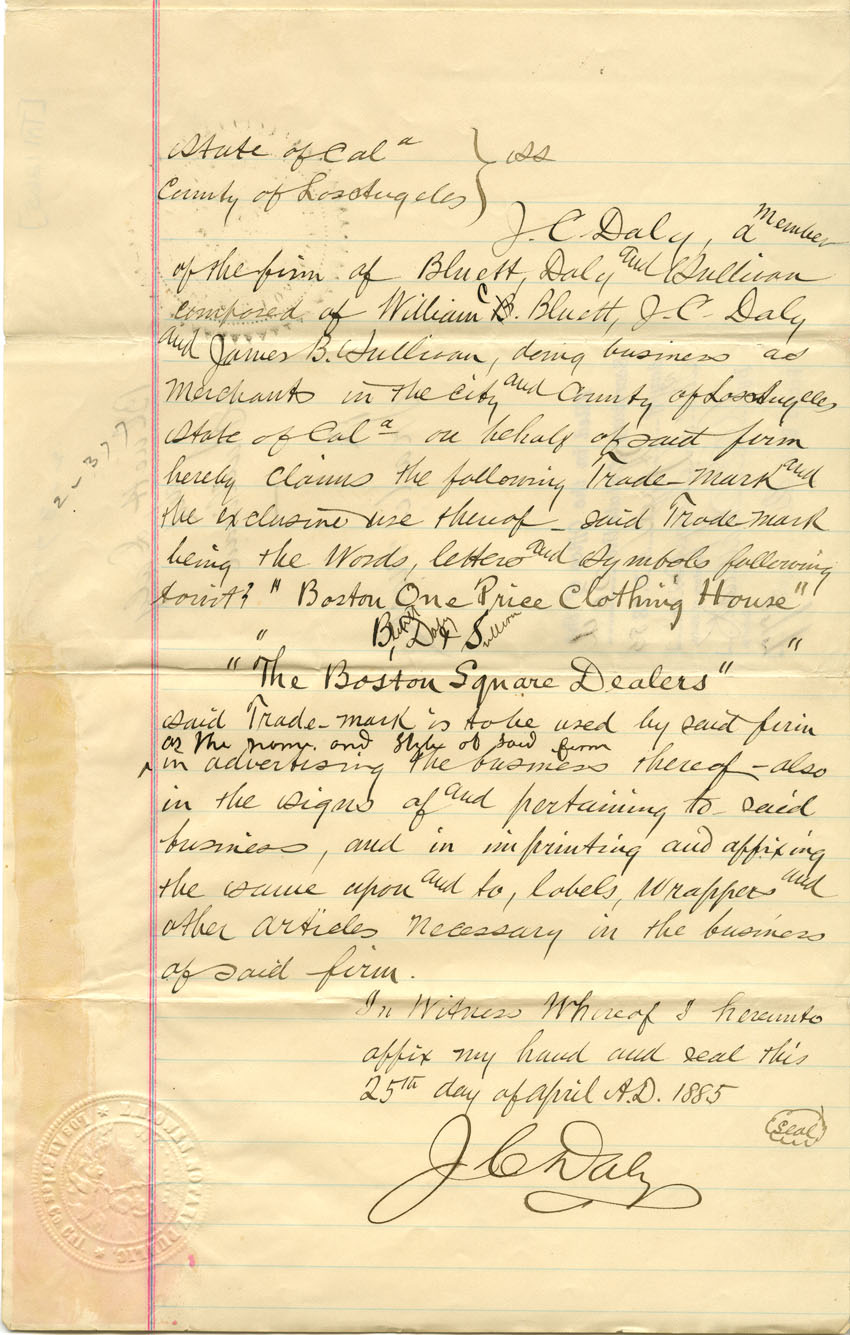 State of Cal a } ss
County of Los Angeles
J. C. Daly, a member
of the firm of Bluett, Daly and Sullivan
composed of William C B. Bluett, J. C. Daly
and James B. Sullivan, doing business as
Merchants in the City and County of Los Angeles
State of Cal a on behalf of said firm
hereby claims the following Trade-mark and
the exclusive use thereof - said Trade-mark
being the Words, letters and symbols following
towit: "Boston One Price Clothing House"
" Bluett, Daly & Sullivan "
"The Boston Square Dealers"
said Trade-mark is to be used by said firm
as the name and style of said firm
^ in advertising the business thereof - also
in the signs of and pertaining to said
business, and in imprinting and affixing
the same upon and to, labels, wrappers and
other articles necessary in the business
of said firm.
In Witness Whereof I hereunto
affix my hand and seal this
25th day of April A.D. 1885
J C Daly
(seal)
2-377
NOTARY PUBLIC
LOS ANGELES CO. CAL.